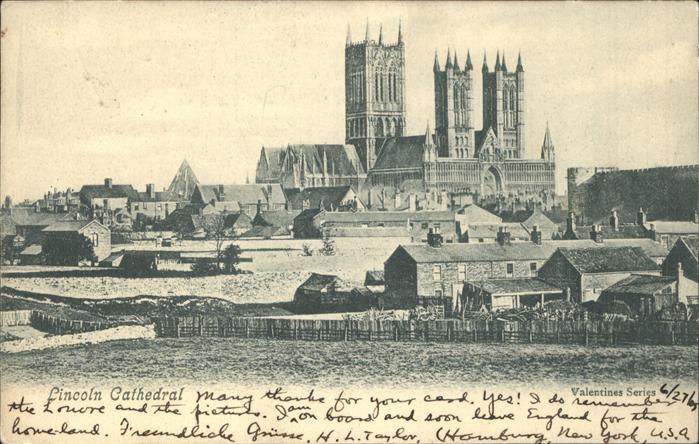 Lincoln Cathedral
Valentines Series
Many thanks for your card. Yes! I do remember 6/27/6
the Louvre and the pictures. I am on board and soon leave England for the
home-land. Freundliche Grüsse, H. L. Taylor, (Hornburg, New York, U.S.A.